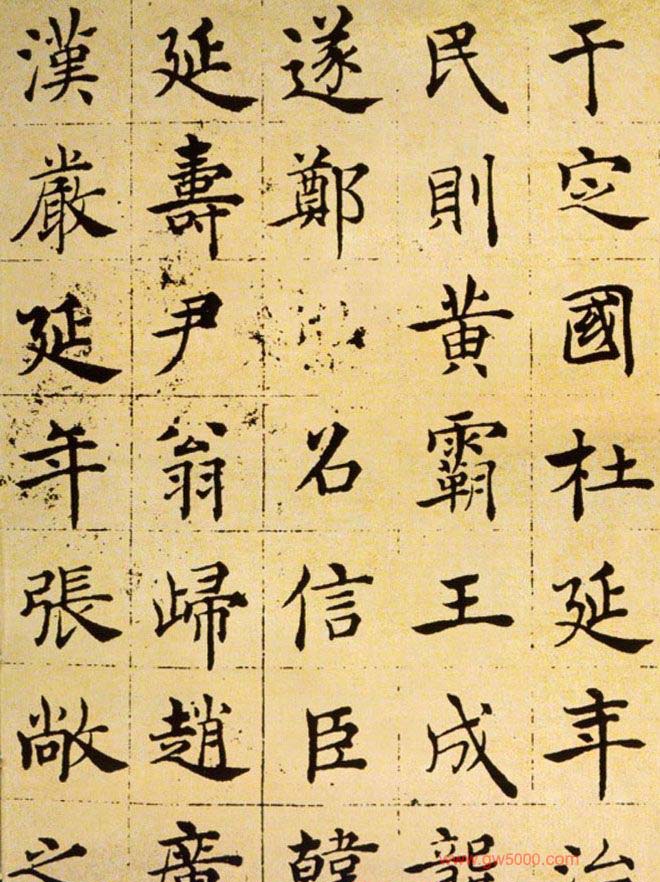 于定國杜延年治
民則黃霸王成龔
遂鄭召信臣韓
延壽尹翁歸趙廣
漢嚴延年張敞之
www.gw5000.com